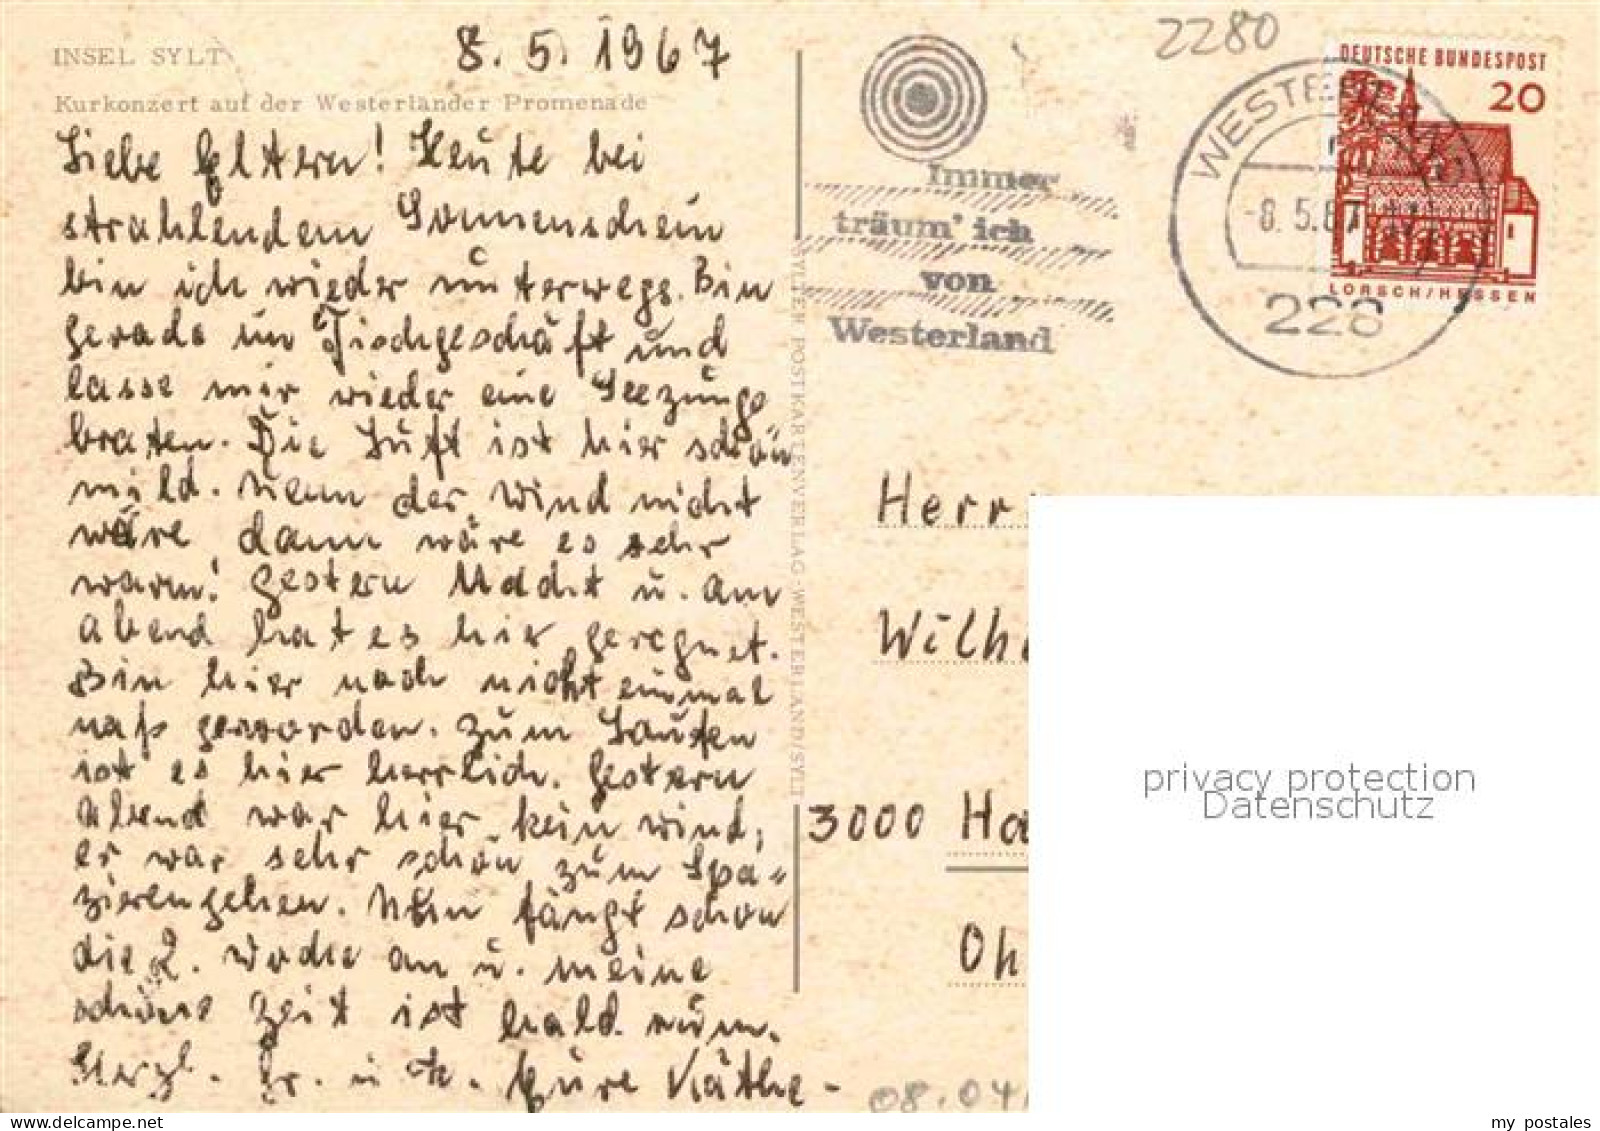 INSEL SYLT
8. 5. 1967
Kurkonzert auf der Westerländer Promenade
Liebe Eltern! Heute bei
strahlendem Sonnenschein
bin ich wieder unterwegs. Bin
gerade im Fischgeschäft und
lasse mir wieder eine Seezunge
braten. Die Luft ist hier schön
mild. Wenn der Wind nicht
wäre, dann wäre es sehr
warm! Gestern Nacht u. am
Abend hat es hier geregnet.
Bin hier noch nicht einmal
naß geworden. Zum Laufen
ist es hier herrlich. Gestern
Abend war hier kein Wind,
es war sehr schön zum Spa-
zierengehen. Nun fängt schon
die 2. Woche an u. meine
schöne Zeit ist bald rum.
Herzl. Gr. u. K. Eure Käthe -
SYLTER POSTKARTENVERLAG · WESTERLAND/SYLT
Immer
träum' ich
von
Westerland
2280
WESTERLAND
-8. 5. 67
228
DEUTSCHE BUNDESPOST
20
LORSCH/HESSEN
Herr
Wilh
3000 Ha
Oh
08.04
privacy protection
Datenschutz
my postales